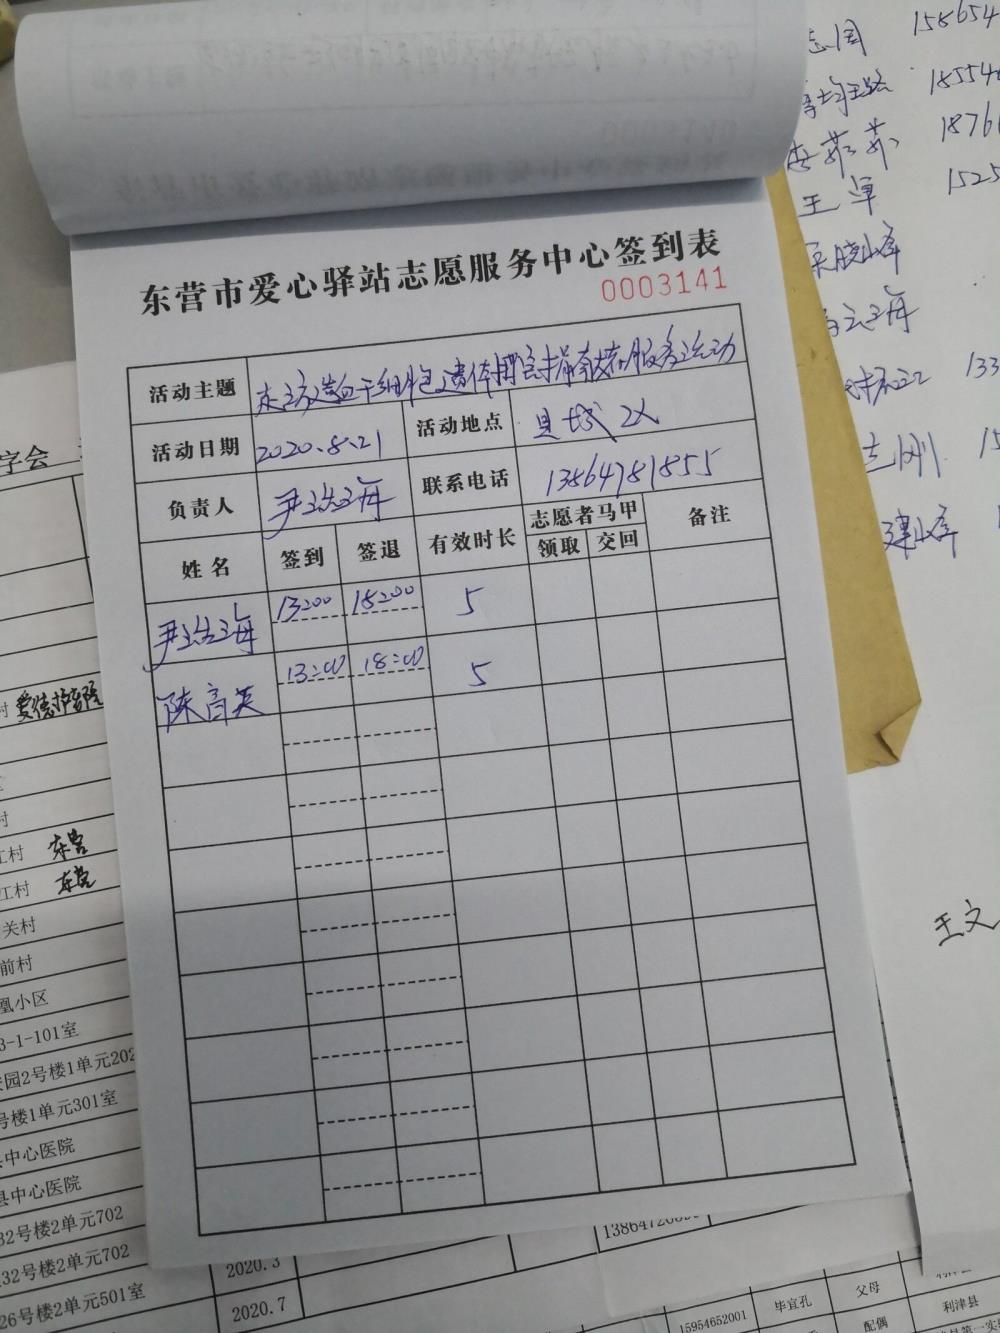 志国 158654
18554
茹茹 1876
王卓 1525
东营市爱心驿站志愿服务中心签到表
0003141
活动主题
造血干细胞遗体器官捐献服务活动
活动日期 2020.8.21 活动地点 县城
负责人 尹浩海 联系电话 13864781855
姓名 签到 签退 有效时长 志愿者马甲 备注
领取 交回
尹浩海 13:00 18:00 5
陈高英 13:00 18:00 5
133
志刚 15
建峰
王文
字会
村 爱德护理院
村
江村 东营
江村 东营
关村
前村
凰小区
3-1-101室
园2号楼1单元202
号楼1单元301室
中心医院
县中心医院
32号楼2单元702
32号楼2单元702 2020.3
26号楼2单元501室 2020.7
15954652001 毕宜孔 父母 利津县
配偶